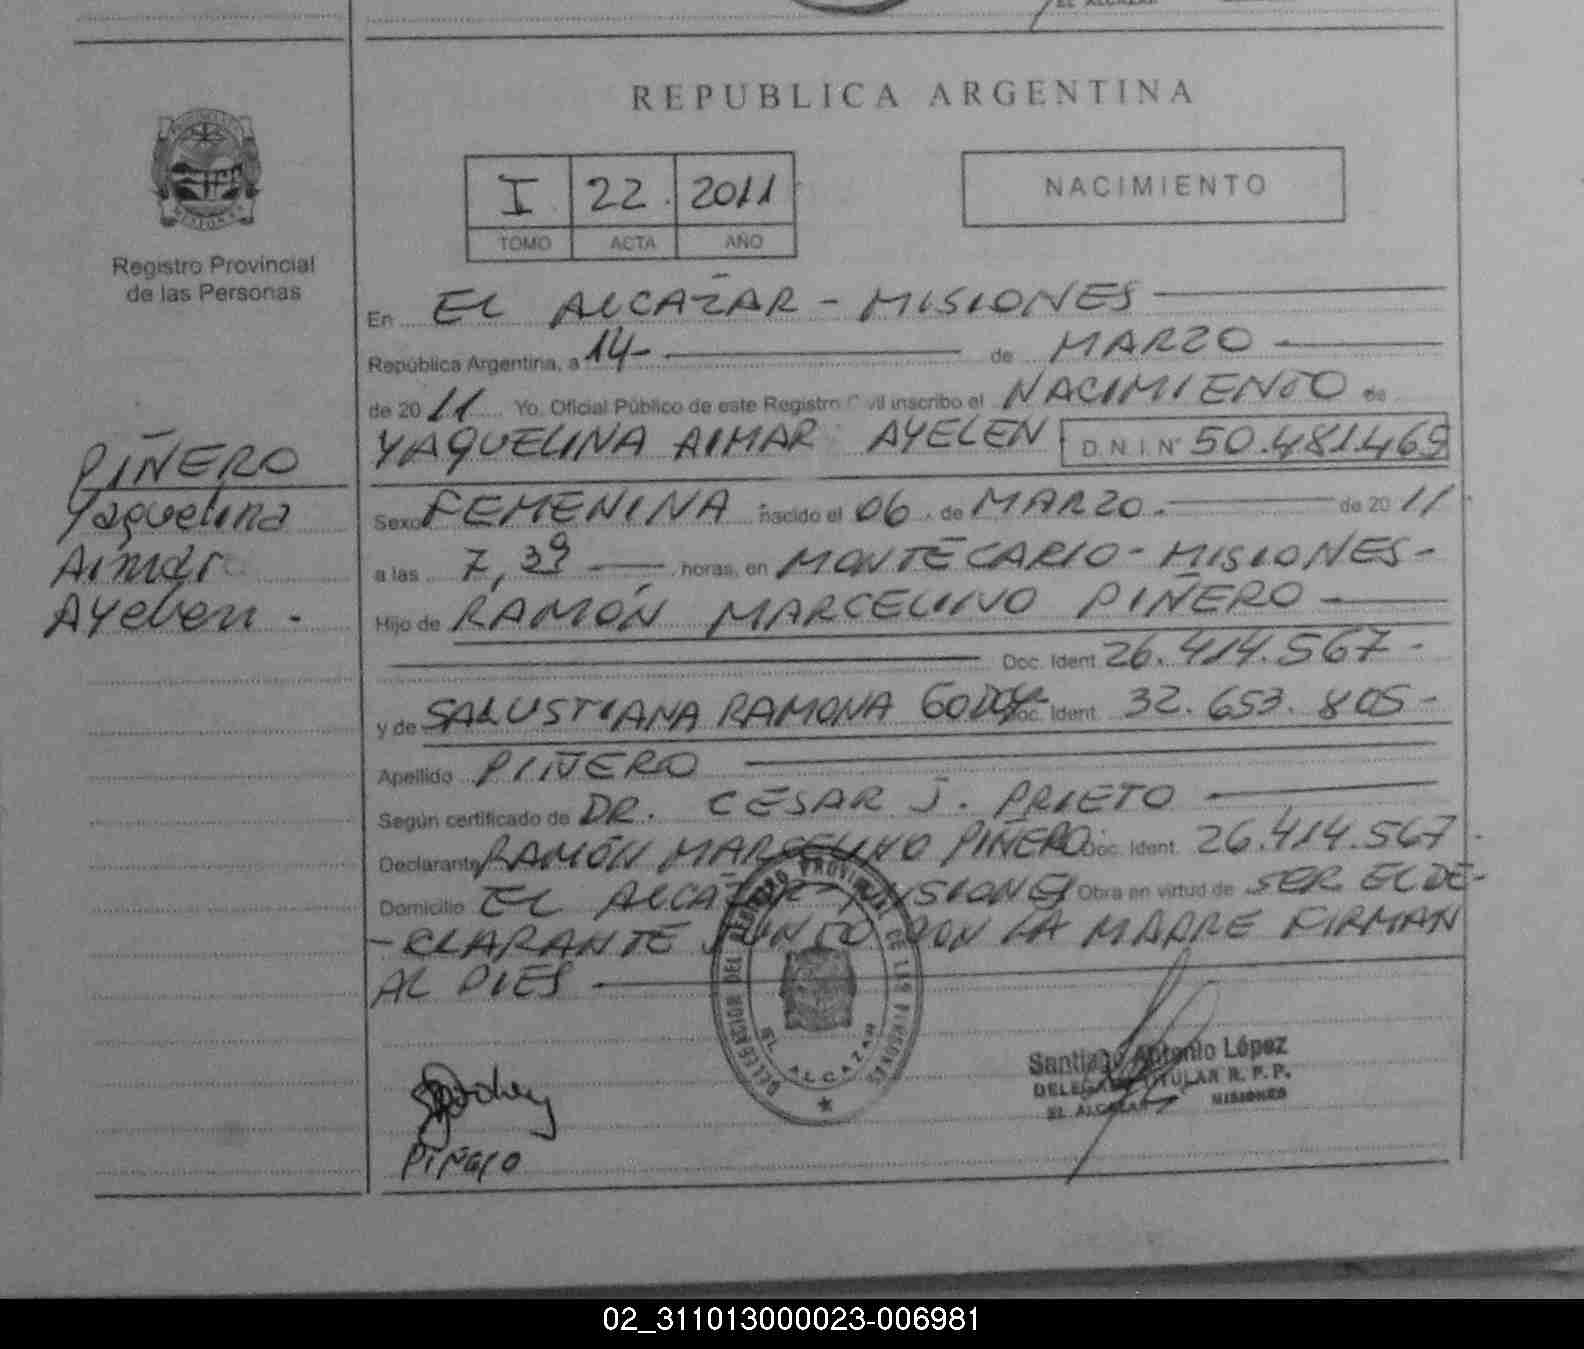 REPUBLICA ARGENTINA
I 22. 2011
TOMO ACTA AÑO
NACIMIENTO
MISIONES
Registro Provincial
de las Personas
En EL ALCAZAR - MISIONES
República Argentina, a 14- de MARZO
de 2011 Yo, Oficial Público de este Registro Civil inscribo el NACIMIENTO de
YAQUELINA AIMAR AYELEN D.N.I. N° 50.481.469
PIÑERO
Yaquelina
Aimar
Ayelen -
Sexo FEMENINA nacido el 06. de MARZO. de 2011
a las 7,39 horas, en MONTECARLO - MISIONES-
Hijo de RAMÓN MARCELINO PIÑERO
Doc. Ident. 26.414.567-
y de SALUSTIANA RAMONA GODOY Doc. Ident. 32.653.805-
Apellido PIÑERO
Según certificado de DR. CESAR J. PRIETO
Declarante RAMÓN MARCELINO PIÑERO Doc. Ident. 26.414.567-
Domicilio EL ALCAZAR - MISIONES Obra en virtud de SER EL DE-
-CLARANTE JUNTO CON LA MADRE FIRMAN
AL PIES
DELEGACION DEL REGISTRO PROVINCIAL DE LAS PERSONAS
EL ALCAZAR
Santiago Antonio López
DELEGADO TITULAR R. P. P.
EL ALCAZAR MISIONES
Piñero
02_311013000023-006981